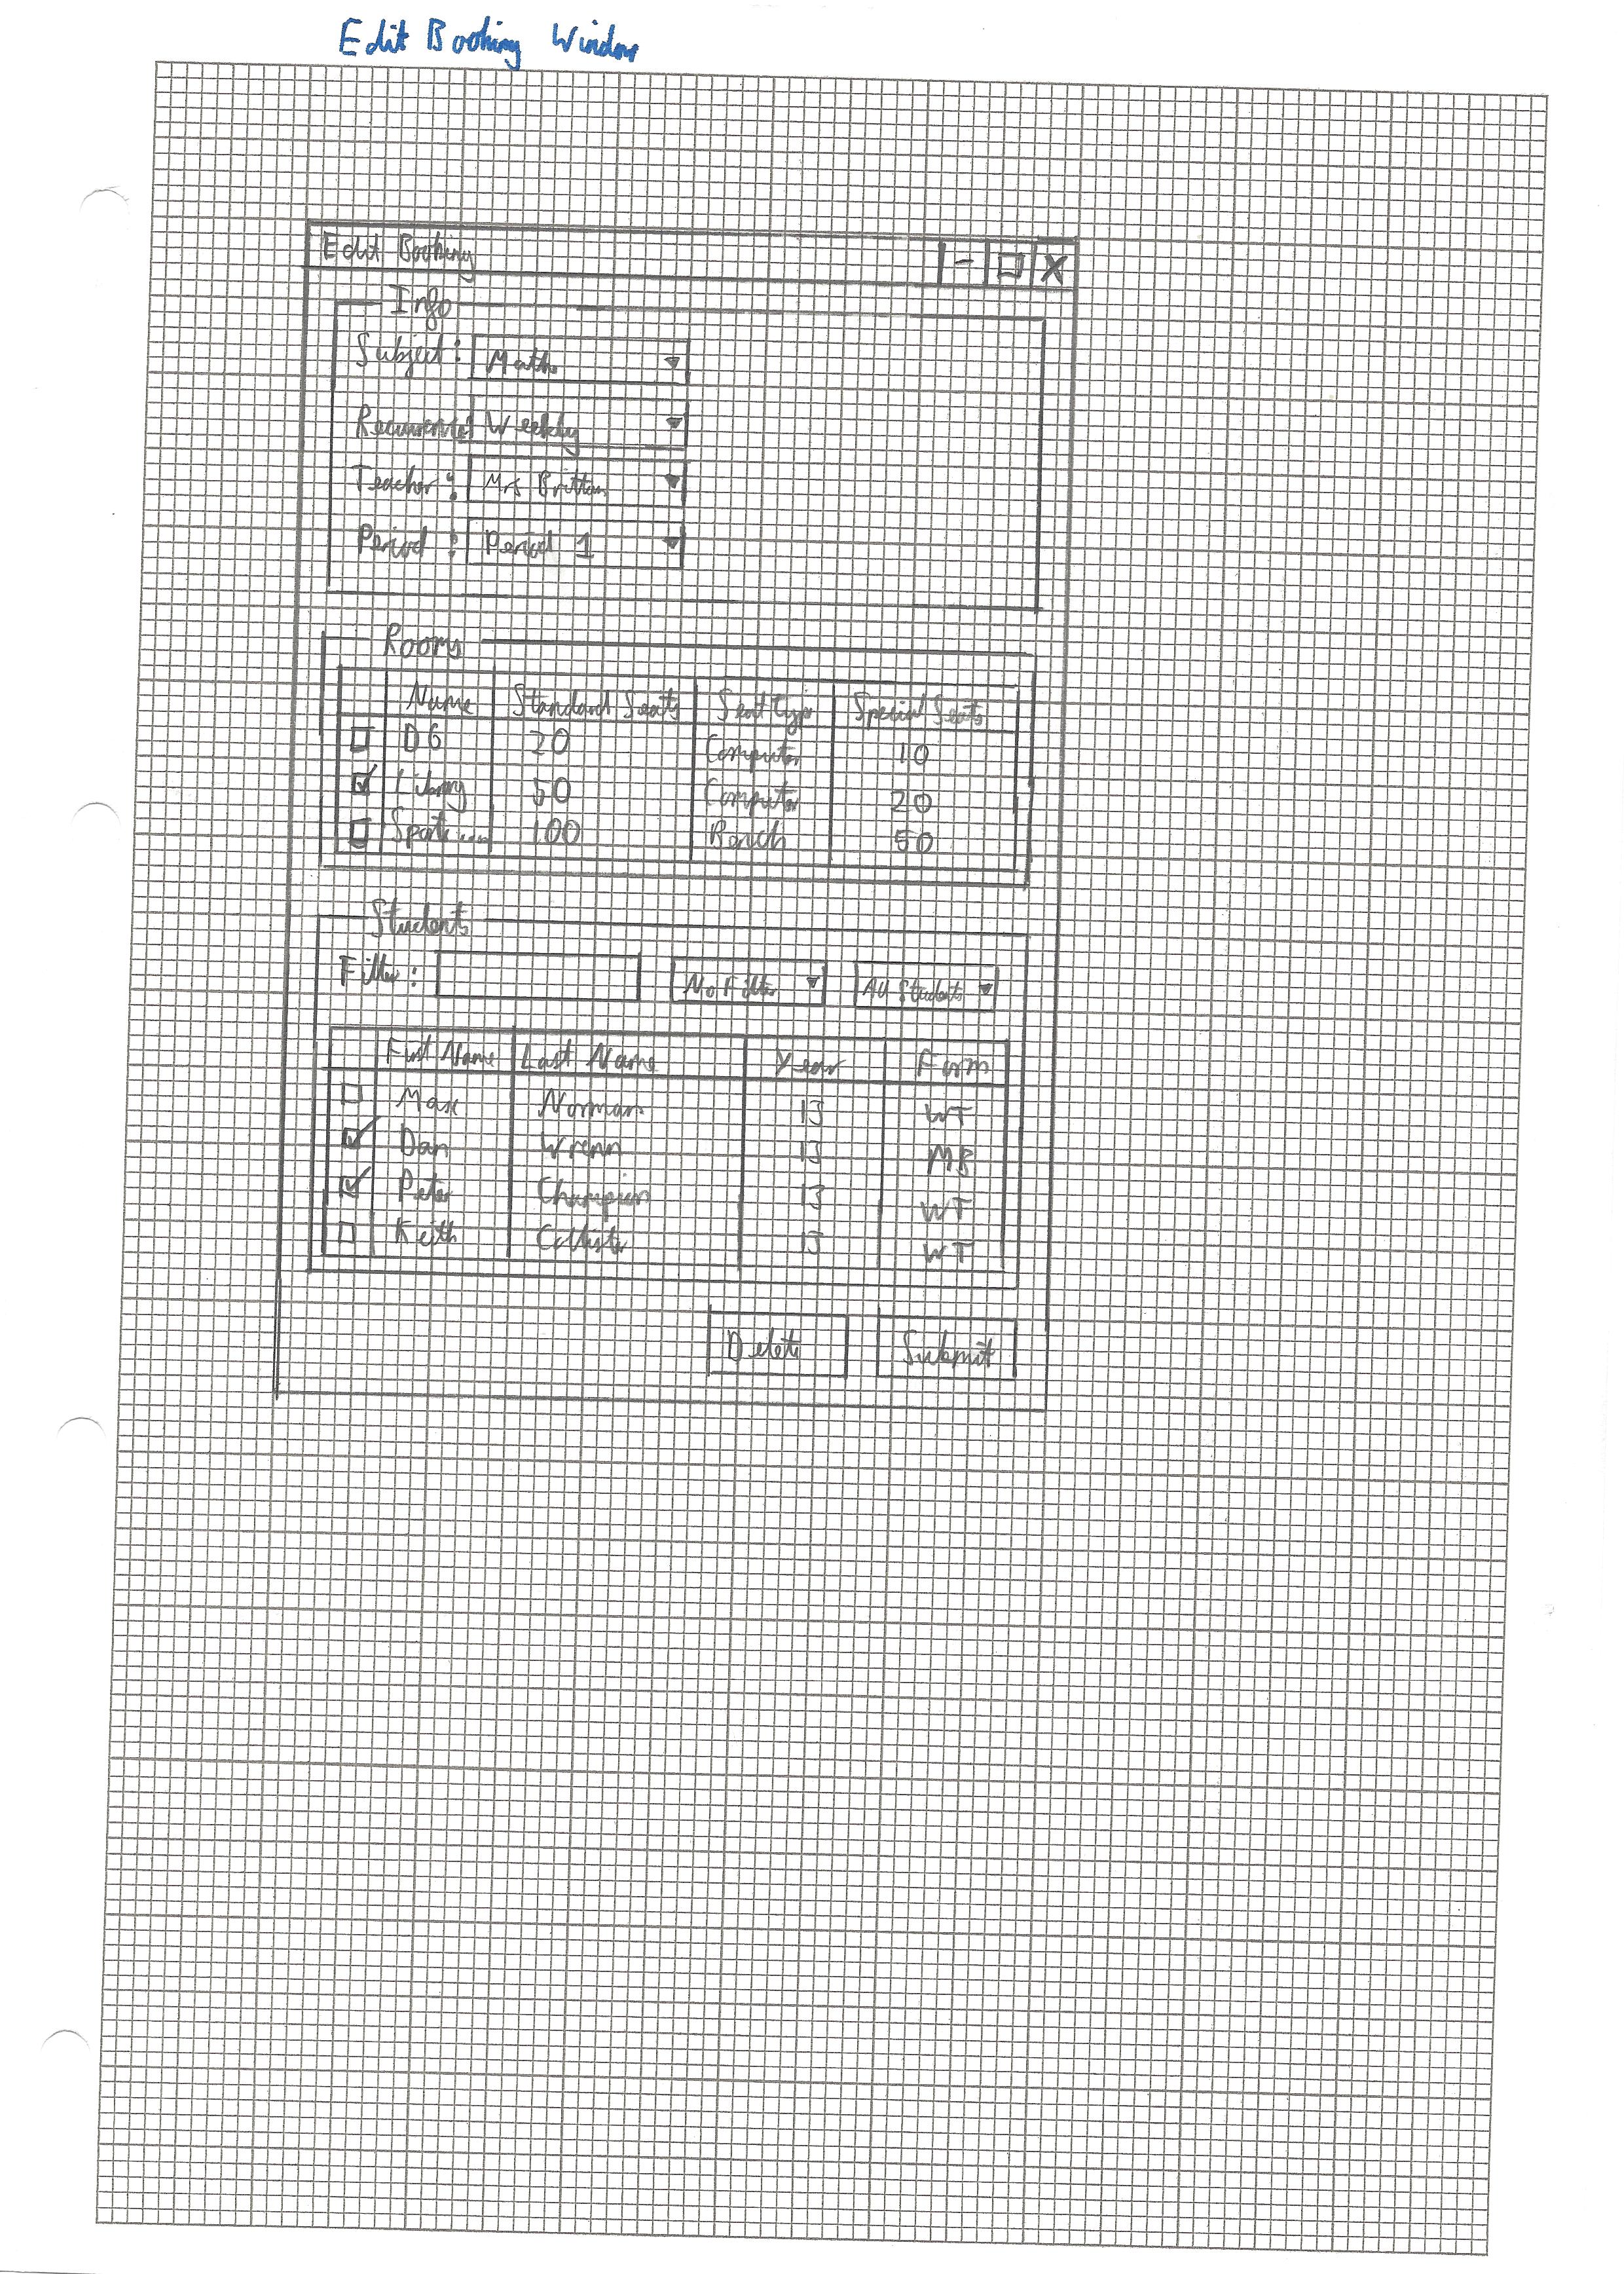 Edit Booking Window
Edit Booking - X
Info
Subject: Maths
Recurrence: Weekly
Teacher: Mrs Brittan
Period: Period 1
Rooms
Name Standard Seats Seat Type Special Seats
D6 20 Computer 10
Library 50 Computer 20
100 Bench 50
Students
Filter: No Filter All Students
First Name Last Name Year Form
Max Norman 13 WT
Dan Wrenn 13 MB
Peter Champion 13 WT
Keith Collister 13 WT
Delete Submit